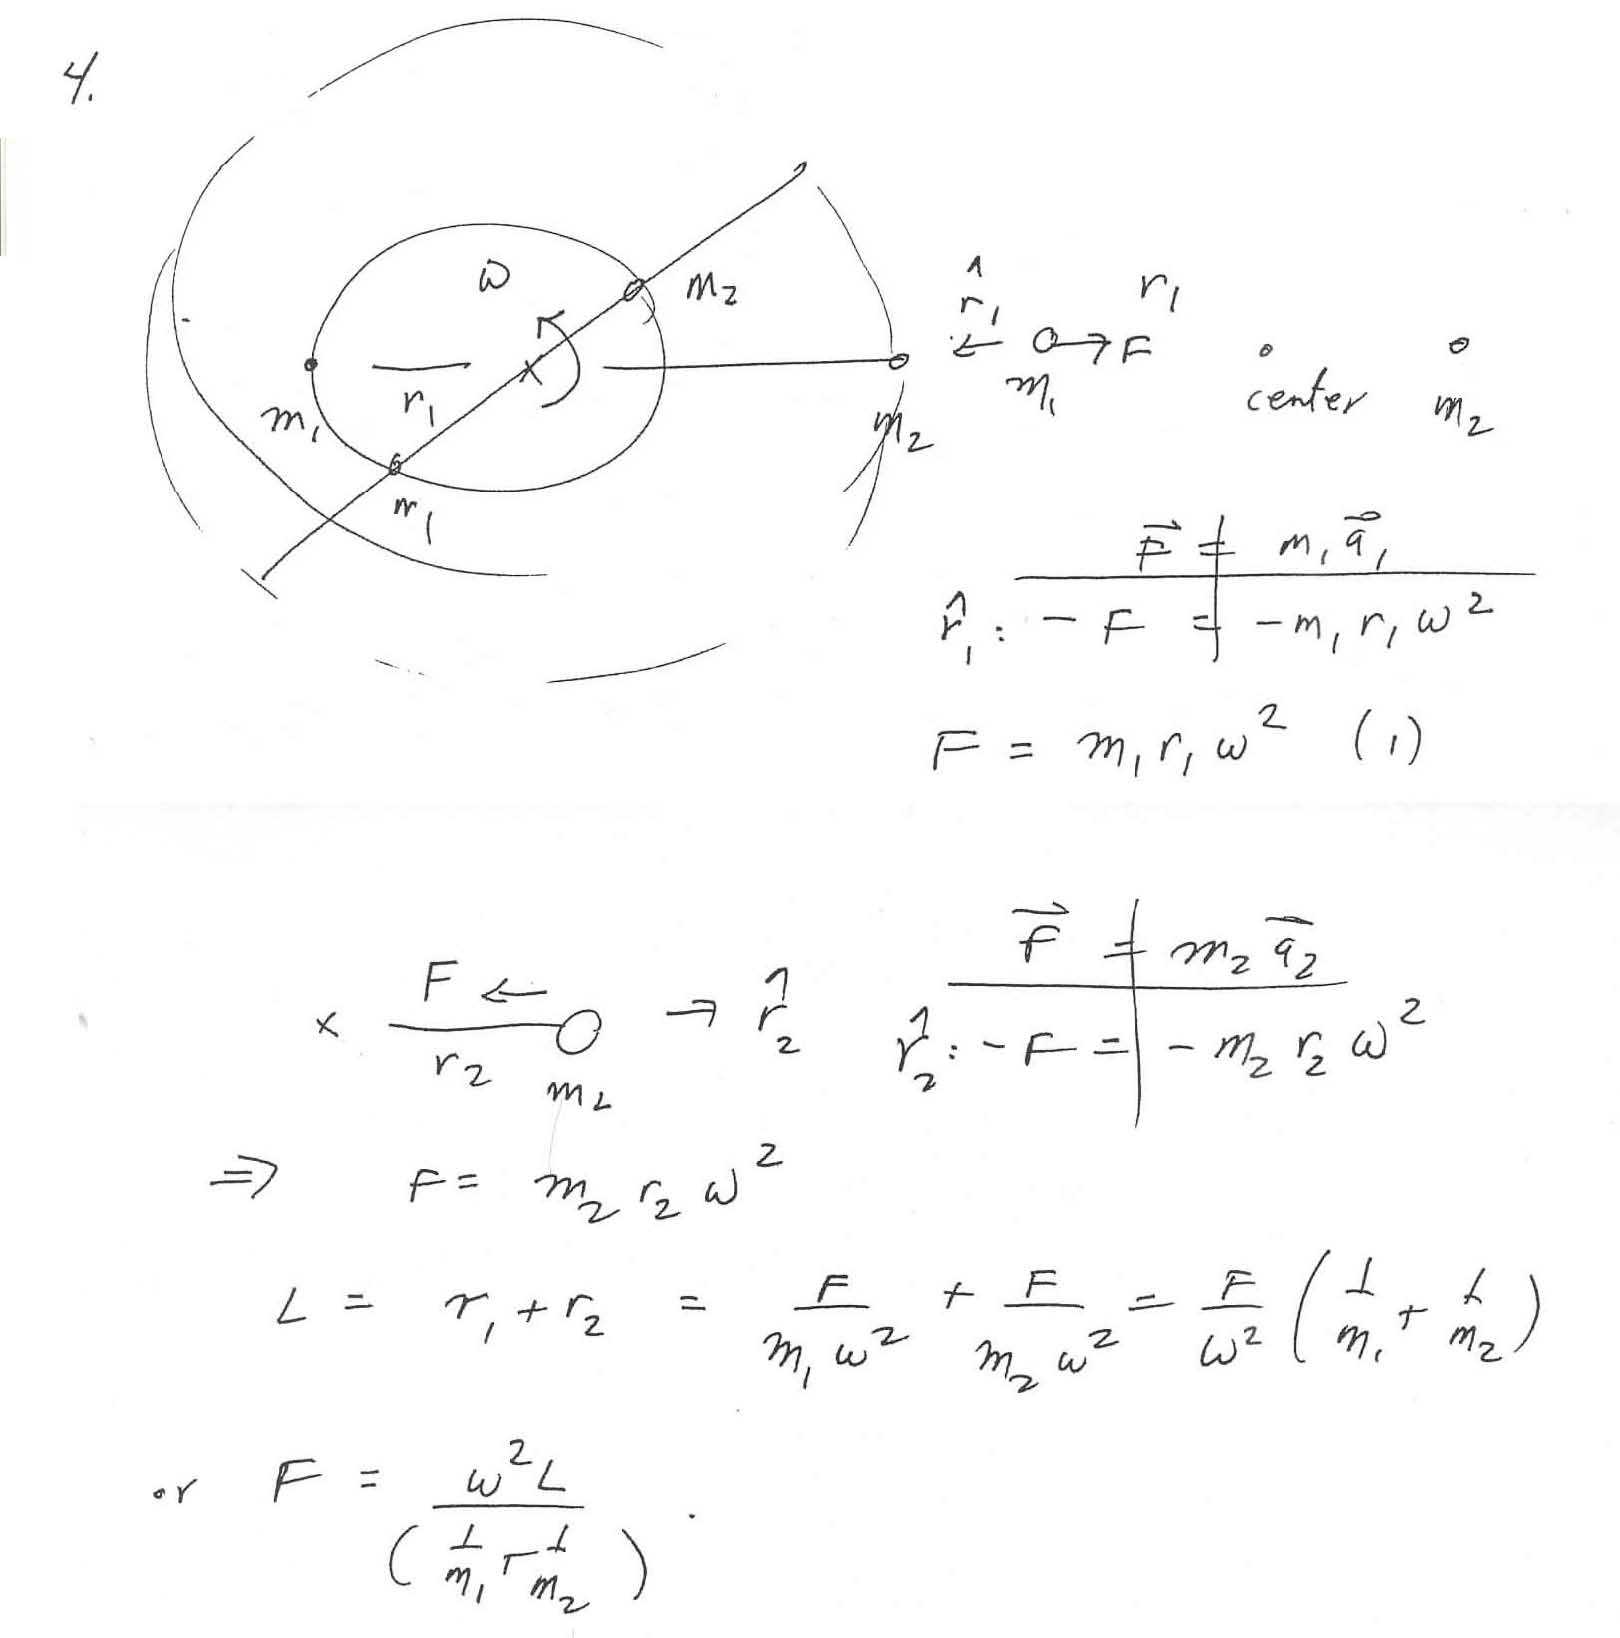 4.
ω
m₂
m₁
r₁
m₂
m₁
r̂₁ r₁
← → F
m₁ center m₂
F⃗ = m₁ a⃗₁
r̂₁: - F = - m₁ r₁ ω²
F = m₁ r₁ ω² (1)
F ← → r̂₂
x r₂ m₂
F⃗ = m₂ a⃗₂
r̂₂: - F = - m₂ r₂ ω²
⇒ F = m₂ r₂ ω²
L = r₁ + r₂ = F/(m₁ ω²) + F/(m₂ ω²) = F/ω² (1/m₁ + 1/m₂)
or F = ω² L / (1/m₁ + 1/m₂).